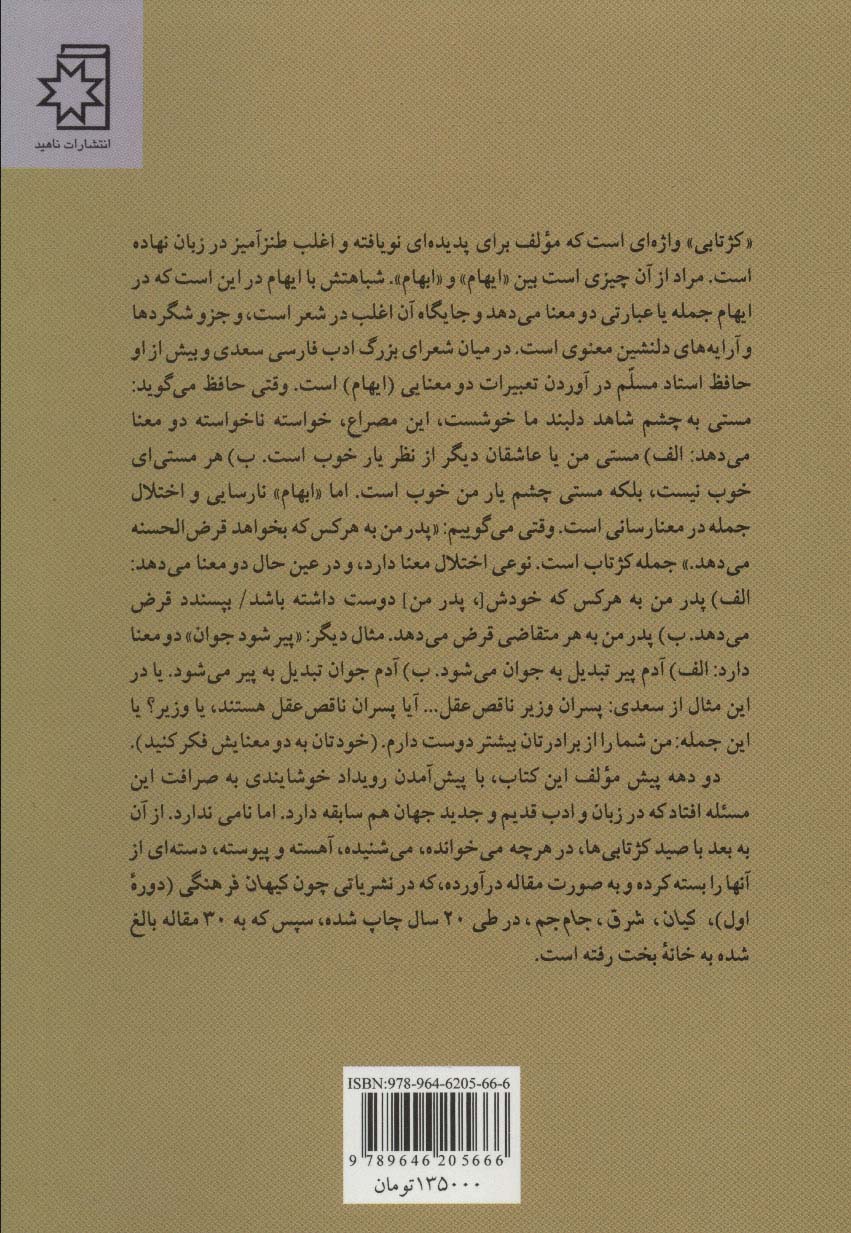 انتشارات ناهید
«کژتابی» واژه‌ای است که مؤلف برای پدیده‌ای نویافته و اغلب طنزآمیز در زبان نهاده
است. مراد از آن چیزی است بین «ایهام» و «ابهام». شباهتش با ایهام در این است که در
ایهام جمله یا عبارتی دو معنا می‌دهد و جایگاه آن اغلب در شعر است، و جزو شگردها
و آرایه‌های دلنشین معنوی است. در میان شعرای بزرگ ادب فارسی سعدی و بیش از او
حافظ استاد مسلّم در آوردن تعبیرات دو معنایی (ایهام) است. وقتی حافظ می‌گوید:
مستی به چشم شاهد دلبند ما خوشست، این مصراع، خواسته ناخواسته دو معنا
می‌دهد: الف) مستی من یا عاشقان دیگر از نظر یار خوب است. ب) هر مستی‌ای
خوب نیست، بلکه مستی چشم یار من خوب است. اما «ابهام» نارسایی و اختلال
جمله در معنارسانی است. وقتی می‌گوییم: «پدر من به هرکس که بخواهد قرض‌الحسنه
می‌دهد.» جمله کژتاب است. نوعی اختلال معنا دارد، و در عین حال دو معنا می‌دهد:
الف) پدر من به هرکس که خودش[، پدر من] دوست داشته باشد/ بپسندد قرض
می‌دهد. ب) پدر من به هر متقاضی قرض می‌دهد. مثال دیگر: «پیر شود جوان» دو معنا
دارد: الف) آدم پیر تبدیل به جوان می‌شود. ب) آدم جوان تبدیل به پیر می‌شود. یا در
این مثال از سعدی: پسران وزیر ناقص‌عقل... آیا پسران ناقص‌عقل هستند، یا وزیر؟ یا
این جمله: من شما را از برادرتان بیشتر دوست دارم. (خودتان به دو معنایش فکر کنید).
دو دهه پیش مؤلف این کتاب، با پیش‌آمدن رویداد خوشایندی به صرافت این
مسئله افتاد که در زبان و ادب قدیم و جدید جهان هم سابقه دارد. اما نامی ندارد. از آن
به بعد با صید کژتابی‌ها، در هرچه می‌خوانده، می‌شنیده، آهسته و پیوسته، دسته‌ای از
آنها را بسته کرده و به صورت مقاله درآورده، که در نشریاتی چون کیهان فرهنگی (دورهٔ
اول)، کیان، شرق، جام‌جم، در طی ۲۰ سال چاپ شده، سپس که به ۳۰ مقاله بالغ
شده به خانهٔ بخت رفته است.
ISBN:978-964-6205-66-6
9 789646 205666
۱۳۵۰۰۰ تومان